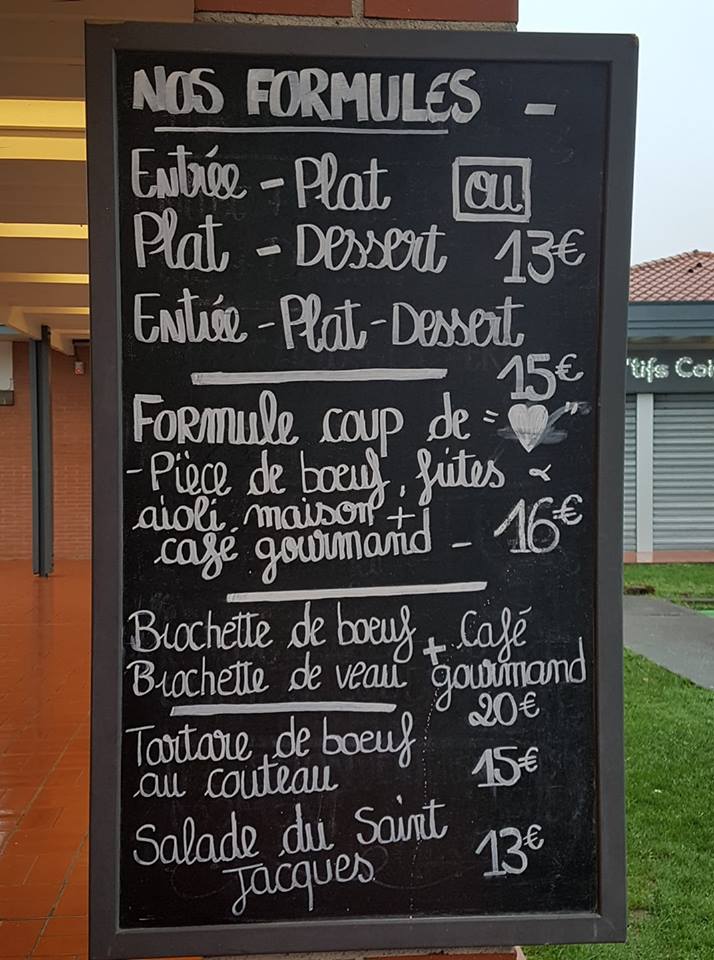 NOS FORMULES -
Entrée - Plat ou
Plat - Dessert 13€
Entrée - Plat - Dessert
15€
Formule coup de "♥"
- Pièce de boeuf, frites &
aioli maison +
café gourmand - 16€
Brochette de boeuf + Café
Brochette de veau gourmand
20€
Tartare de boeuf
au couteau 15€
Salade du Saint
Jacques 13€
'tifs Coi